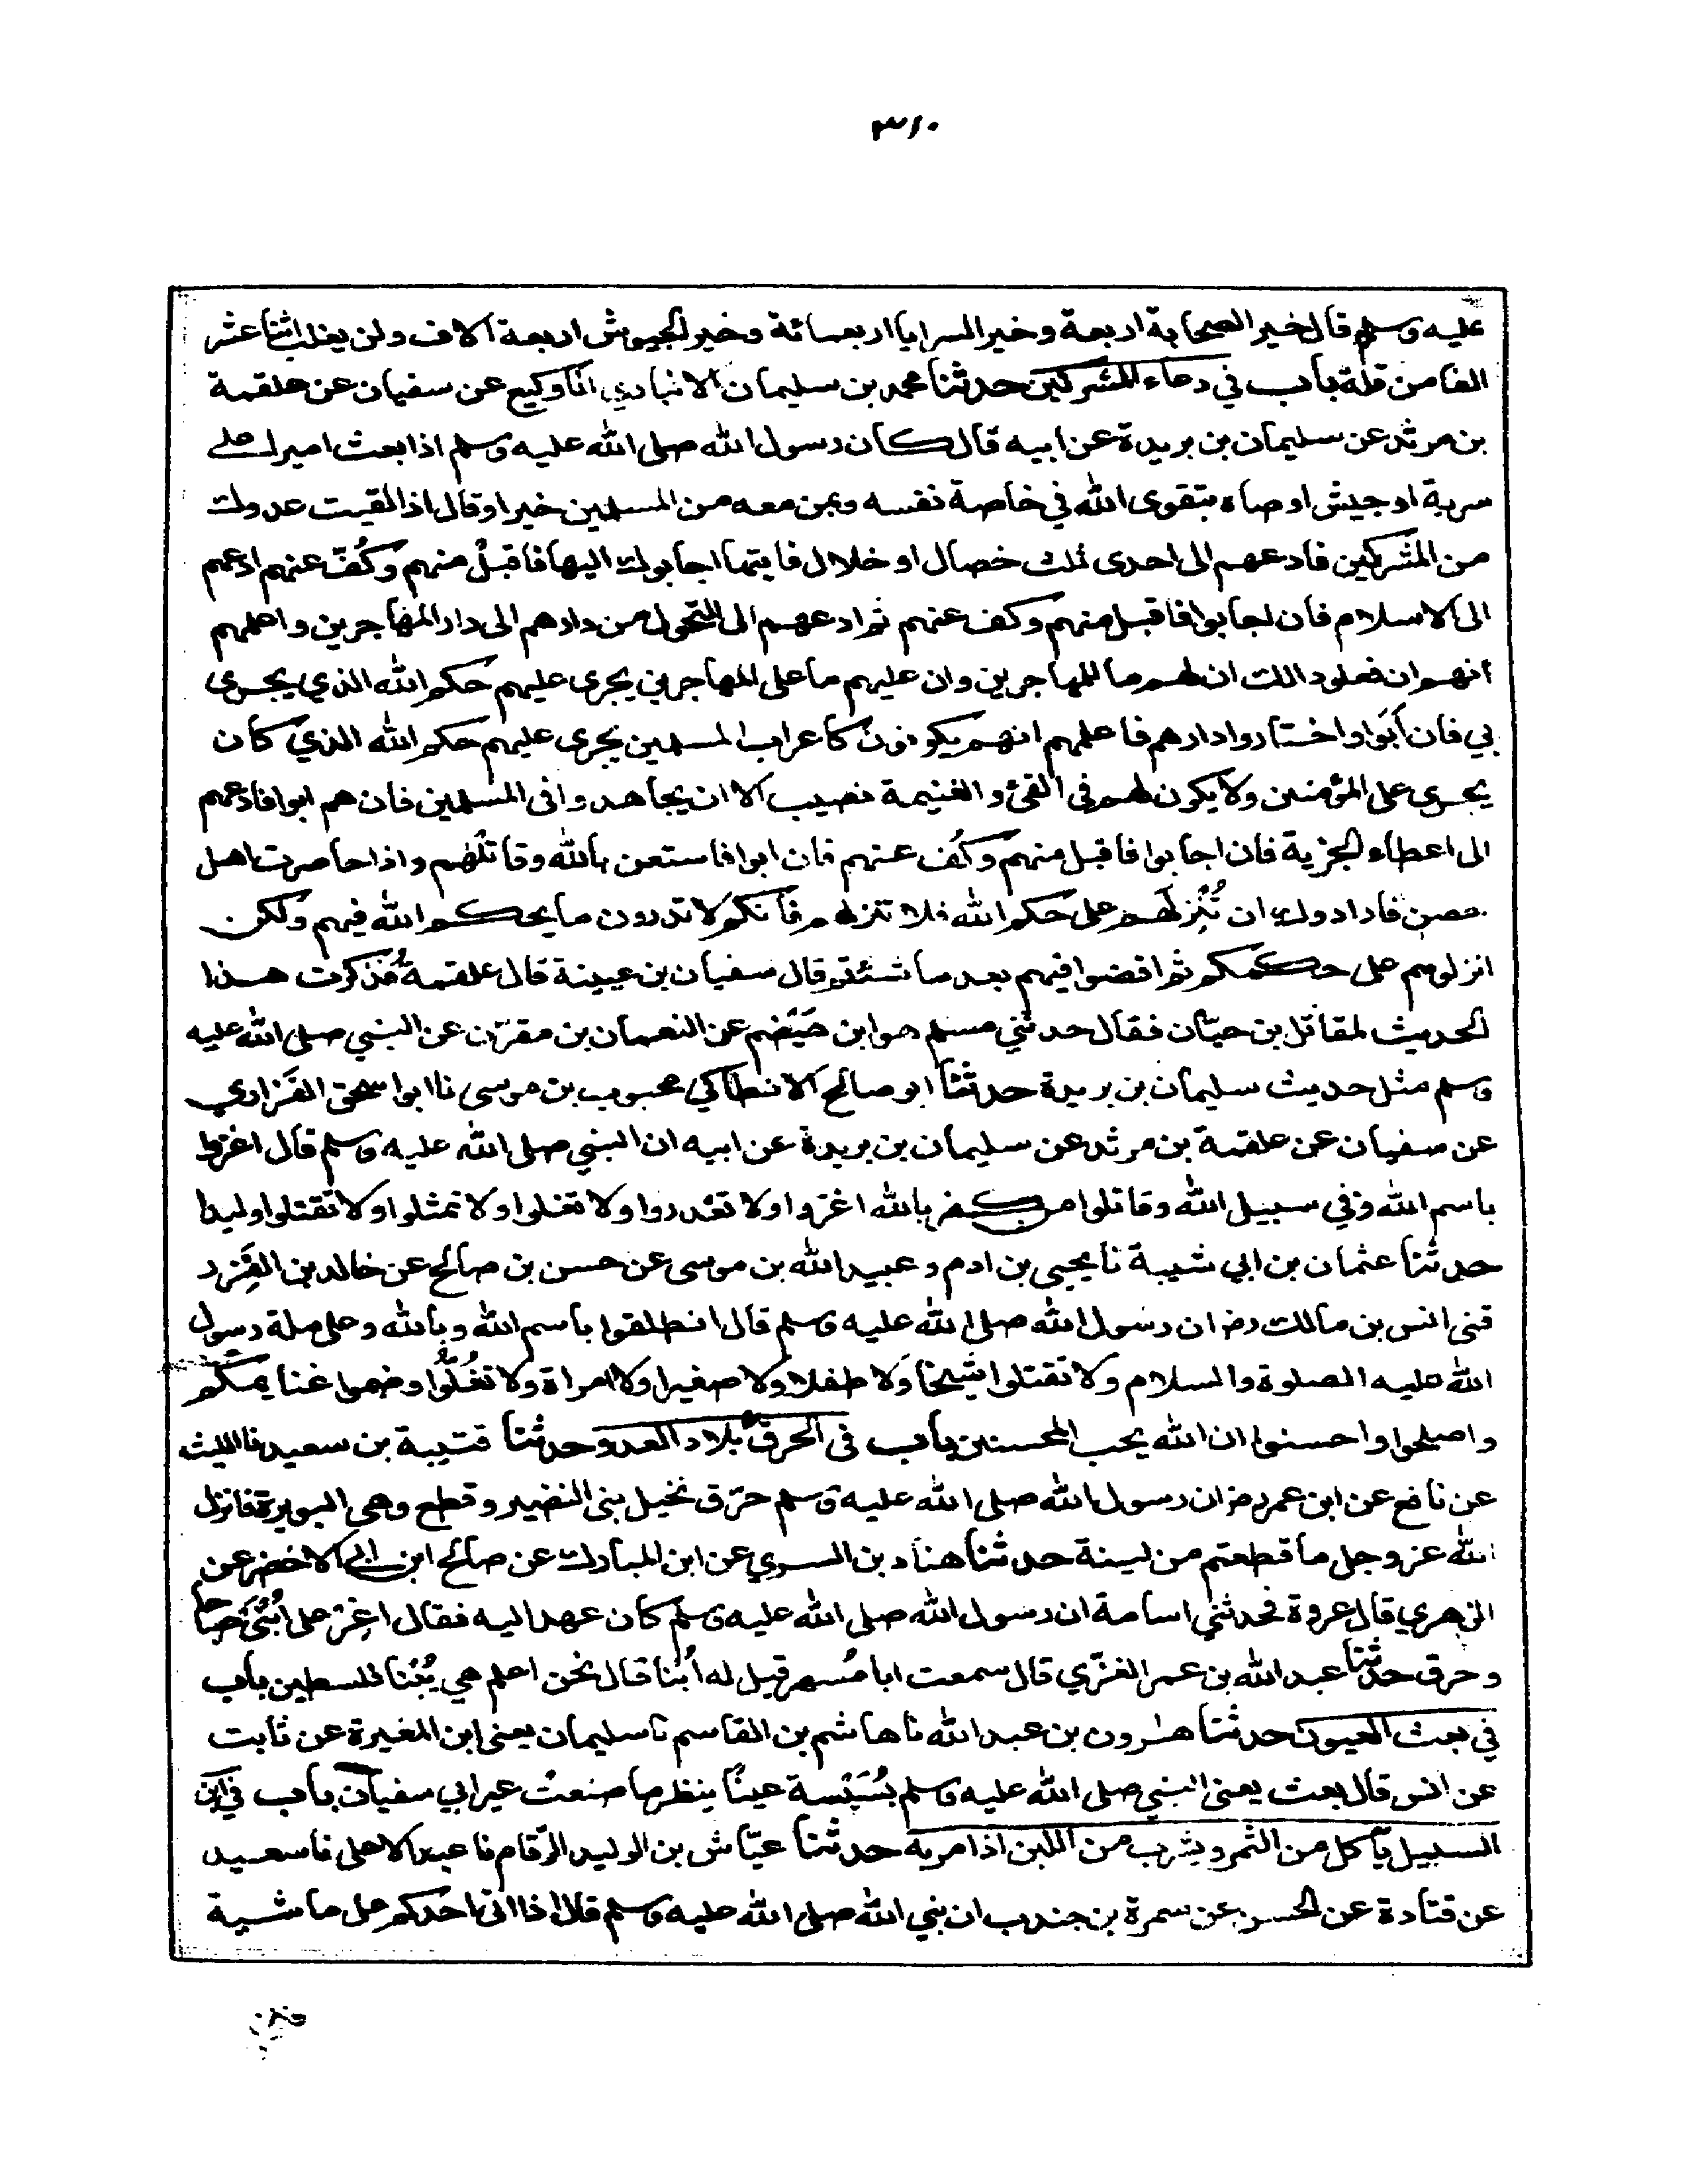 ٣١٠
عليه وسلم قال خير الصحابة اربعة وخير السرايا اربعمائة وخير الجيوش اربعة الاف ولن يغلب اثنا عشر
الفا من قلة باب في دعاء المشركين حدثنا محمد بن سليمان الانباري انا وكيع عن سفيان عن علقمة
بن مرثد عن سليمان بن بريدة عن ابيه قال كان رسول الله صلى الله عليه وسلم اذا بعث اميرا على
سرية او جيش اوصاه بتقوى الله في خاصة نفسه وبمن معه من المسلمين خيرا وقال اذا لقيت عدوك
من المشركين فادعهم الى احدى ثلث خصال او خلال فايتها اجابوك اليها فاقبل منهم وكُفّ عنهم ادعهم
الى الاسلام فان اجابوا فاقبل منهم وكف عنهم ثم ادعهم الى التحول من دارهم الى دار المهاجرين واعلمهم
انهم ان فعلوا ذلك ان لهم ما للمهاجرين وان عليهم ما على المهاجرين يجرى عليهم حكم الله الذي يجرى
بي فان أبَوا واختاروا دارهم فاعلمهم انهم يكونون كاعراب المسلمين يجرى عليهم حكم الله الذي كان
يجرى على المؤمنين ولا يكون لهم فى الفئ والغنيمة نصيب الا ان يجاهدوا فى المسلمين فان هم ابوا فادعهم
الى اعطاء الجزية فان اجابوا فاقبل منهم وكُف عنهم فان ابوا فاستعن بالله وقاتلهم واذا حاصرت اهل
حصن فارادوك ان تُنْزِلَهم على حكم الله فلا تنزلهم فانكم لا تدرون ما يحكم الله فيهم ولكن
انزلوهم على حكمكم ثم اقضوا فيهم بعد ما شئتم قال سفيان بن عيينة قال علقمة فذكرت هذا
الحديث لمقاتل بن حيّان فقال حدثني مسلم هو ابن هَيْضم عن النعمان بن مقرّن عن النبي صلى الله عليه
وسلم مثل حديث سليمان بن بريدة حدثنا ابو صالح الانطاكي محبوب بن موسى نا ابو اسحق الفَزاري
عن سفيان عن علقمة بن مرثد عن سليمان بن بريدة عن ابيه ان النبي صلى الله عليه وسلم قال اغزوا
باسم الله وفي سبيل الله وقاتلوا من كفر بالله اغزوا ولا تغدروا ولا تغلوا ولا تمثلوا ولا تقتلوا وليدا
حدثنا عثمان بن ابي شيبة نا يحيى بن ادم وعبيد الله بن موسى عن حسن بن صالح عن خالد بن الفِزر د
ثنى انس بن مالك رض ان رسول الله صلى الله عليه وسلم قال انطلقوا باسم الله وبالله وعلى ملة رسول
الله عليه الصلوة والسلام ولا تقتلوا شيخا وَلا طفلا ولا صغيرا ولا امراة ولا تغُلّوا وضموا غنايمكم
واصلحوا واحسنوا ان الله يحب المحسنين باب فى الحرق ببلاد العدو حدثنا قتيبة بن سعيد نا الليث
عن نافع عن ابن عمر رض ان رسول الله صلى الله عليه وسلم حرّق نخيل بنى النضير وقطع وهى البويرة فانزل
الله عز وجل ما قطعتم من لينة حدثنا هناد بن السري عن ابن المبارك عن صالح ابن ابى الاخضر عن
الزهري قال عروة فحدثني اسامة ان رسول الله صلى الله عليه وسلم كان عهد اليه فقال اغِرْ على اُبْنَى صباحا
وحرق حدثنا عبد الله بن عمر الغزّي قال سمعت ابا مُسهر قيل له اُبنا قال نحن اعلم هي يُبْنا فلسطين باب
في بعث العيون حدثنا هٰرون بن عبد الله نا هاشم بن القاسم نا سليمان يعنى ابن المغيرة عن ثابت
عن انس قال بعث يعنى النبي صلى الله عليه وسلم بُسَيْسة عيناً ينظر ما صنعت عير ابي سفيان باب في ابن
السبيل يأكل من الثمر ويشرب من اللبن اذا مر به حدثنا عيّاش بن الوليد الرّقام نا عبد الاعلى نا سعيد
عن قتادة عن الحسن عن سمرة بن جندب ان نبي الله صلى الله عليه وسلم قال اذا اتى احدكم على ماشية